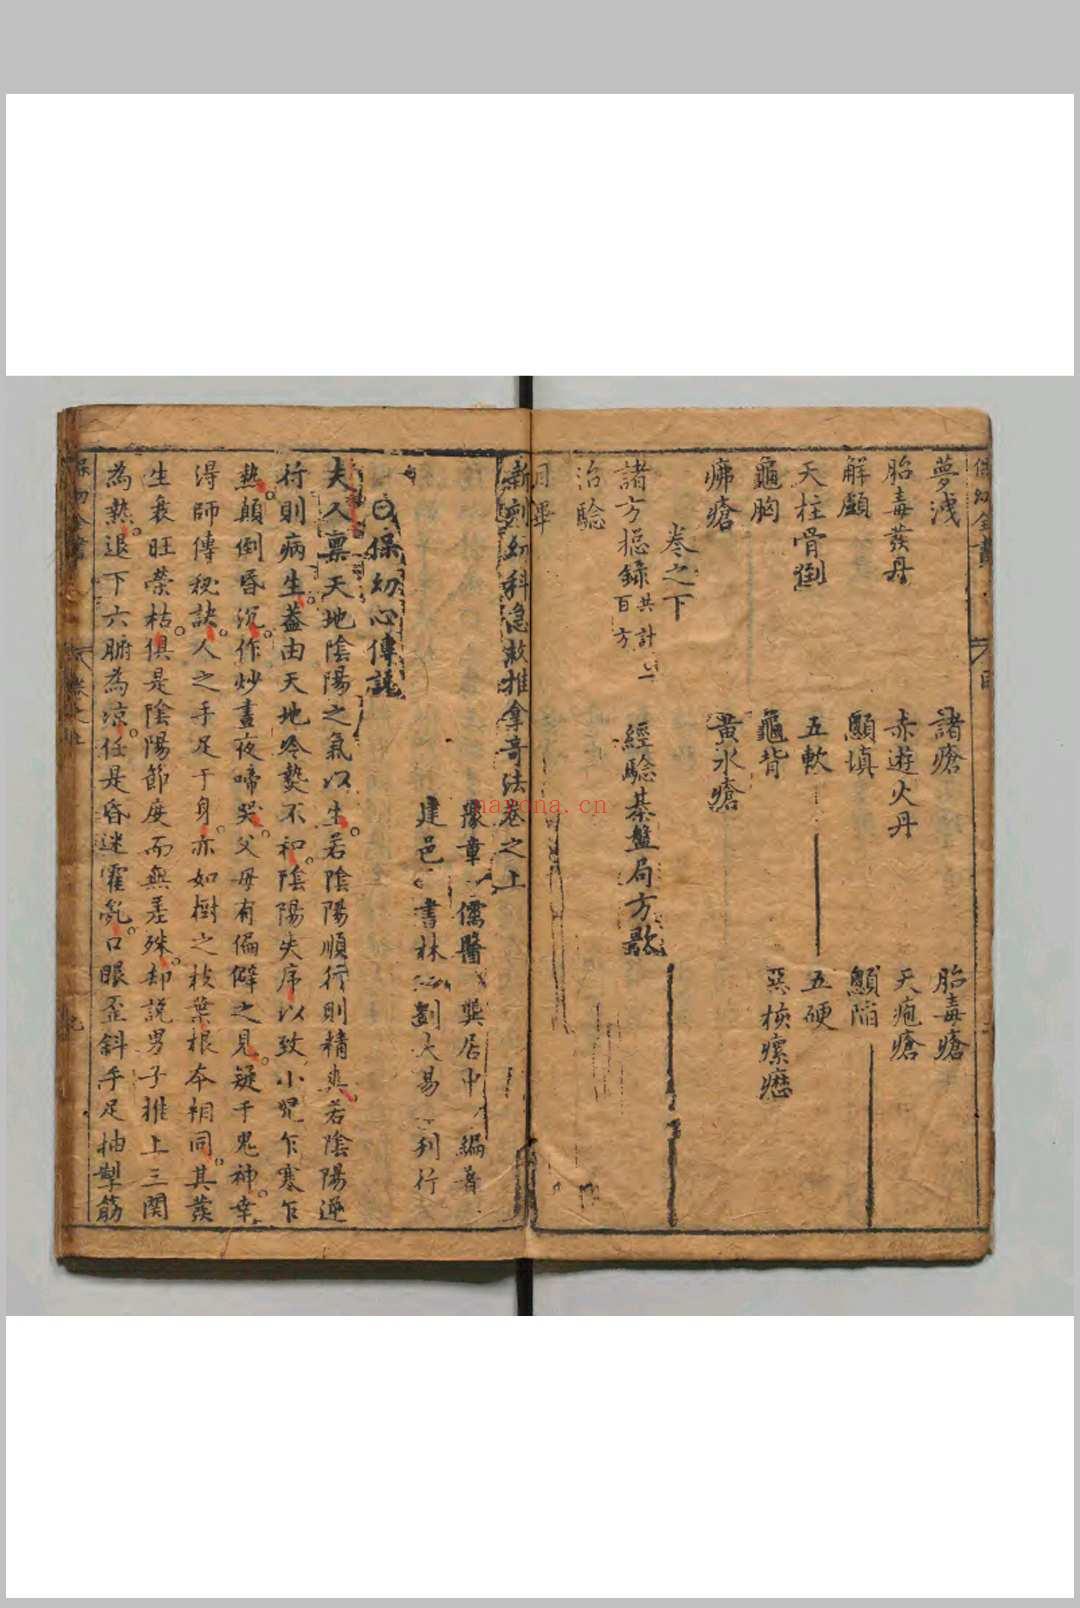 夢洩　諸瘡　胎毒瘡
胎毒發丹　赤遊火丹　天疱瘡
解顱　顖填　顖陷
天柱骨倒　五軟　五硬
龜胸　龜背　惡核瘰癧
疿瘡　黃水瘡
卷之下
諸方摠錄共計一百方　經驗棊盤局方歌
治驗
目畢
新刻幼科急救推拿奇法卷之上
豫章　儒醫　龔居中　編著
建邑　書林　劉大易　刊行
保幼心傳說
夫人稟天地陰陽之氣以生。若陰陽順行則精爽。若陰陽逆
行則病生。蓋由天地冷熱不和。陰陽失序。以致小兒乍寒乍
熱。顛倒昏沉。作炒晝夜啼哭。父母有偏僻之見。疑于鬼神。幸
得師傳秘訣。人之手足于身。亦如樹之枝葉根本相同。其發
生衰旺榮枯。俱是陰陽節度而無差殊。却說男子推上三関
為熱。退下六腑為涼。任是昏迷霍亂。口眼歪斜手足抽掣筋
nayona.cn